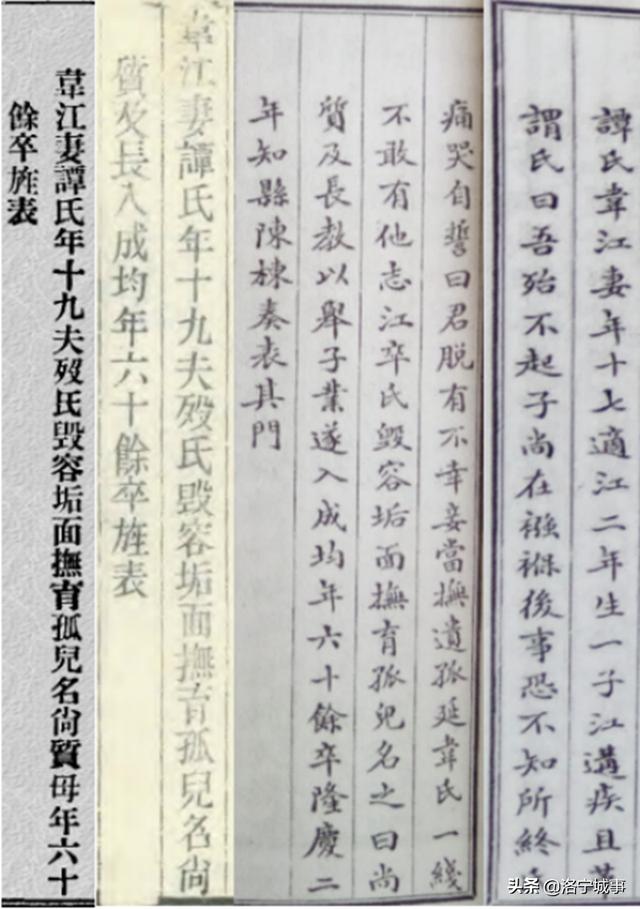 譚氏韋江妻年十七適江二年生一子江遘疾且
謂氏曰吾殆不起子尚在襁褓後事恐不知所終
痛哭自誓曰君脱有不幸妾當撫遺孤延韋氏一綫
不敢有他志江卒氏毀容垢面撫育孤兒名之曰尚
質及長教以舉子業遂入成均年六十餘卒隆慶二
年知縣陳棟奏表其門
韋江妻譚氏年十九夫歿氏毀容垢面撫育孤兒名尚
質及長入成均年六十餘卒旌表
韋江妻譚氏年十九夫歿氏毀容垢面撫育孤兒名尚質母年六十
餘卒旌表
头条 @洛宁城事